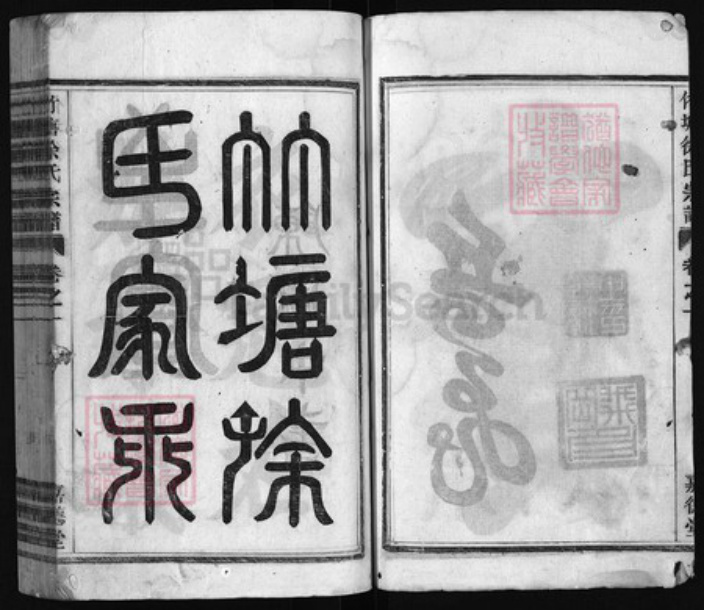 竹塘徐氏宗譜
卷之一
猶他家
譜學會
特藏
竹塘徐
氏家乘
竹塘徐氏宗譜
卷之一
FamilySearch